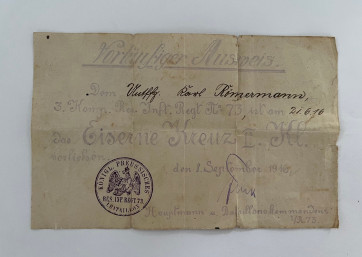 Vorläufiger Ausweis.
Dem Utffz. Karl Römermann,
3. Komp. Res. Inft. Regt. Nr. 73, ist am 21.6.16
das Eiserne Kreuz II. Kl.
verliehen.
den 1. September
KÖNIGL. PREUSSISCHES
RES. INF. RGT. 73
Hauptmann u. Bataillonskommandeur